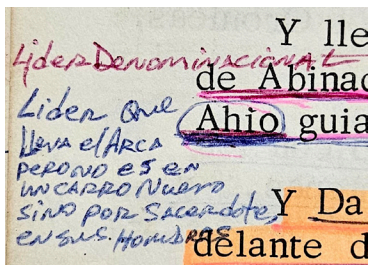 Y lle
Lider Denominacional
de Abinad
Lider que
lleva el Arca
pero no es en
un carro nuevo
sino por Sacerdote,
en sus Hombros
Ahio guia
Y Da
delante d